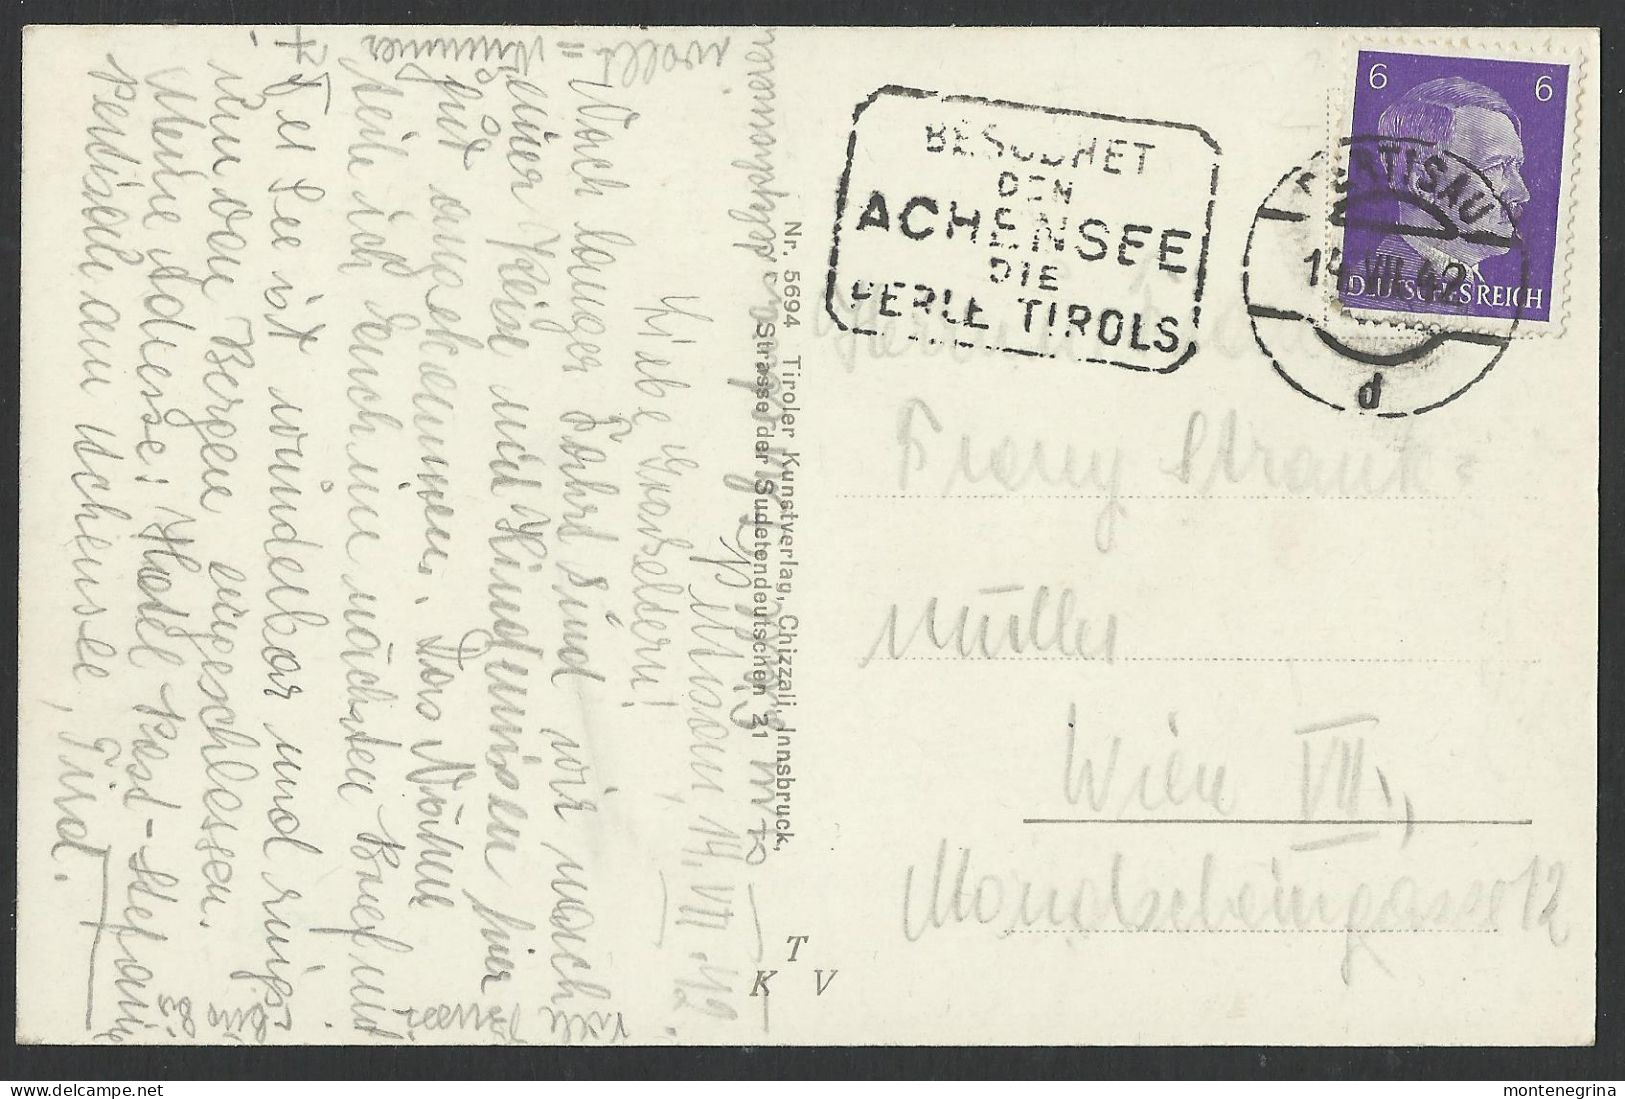 6 6
DEUTSCHES REICH
PERTISAU
14.VII.42
d
BESUCHET
DEN
ACHENSEE
DIE
PERLE TIROLS
Franz Strank-
Müller
Wien VII.,
Mondscheingasse 12
Nr. 5694 Tiroler Kunstverlag, Chizzali, Innsbruck,
Strasse der Sudetendeutschen 21
T
K V
Pertisau, 14. VII. 42.
Liebe Großeltern!
Nach langer Fahrt sind wir nach
einer Reise mit Hindernissen hier
gut angekommen. Das Nähere
teile ich Euch im nächsten Brief mit
Der See ist wunderbar und rings-
um von Bergen eingeschlossen.
Meine Adresse: Hotel Post-Stefanie
Pertisau am Achensee, Tirol.
montenegrina